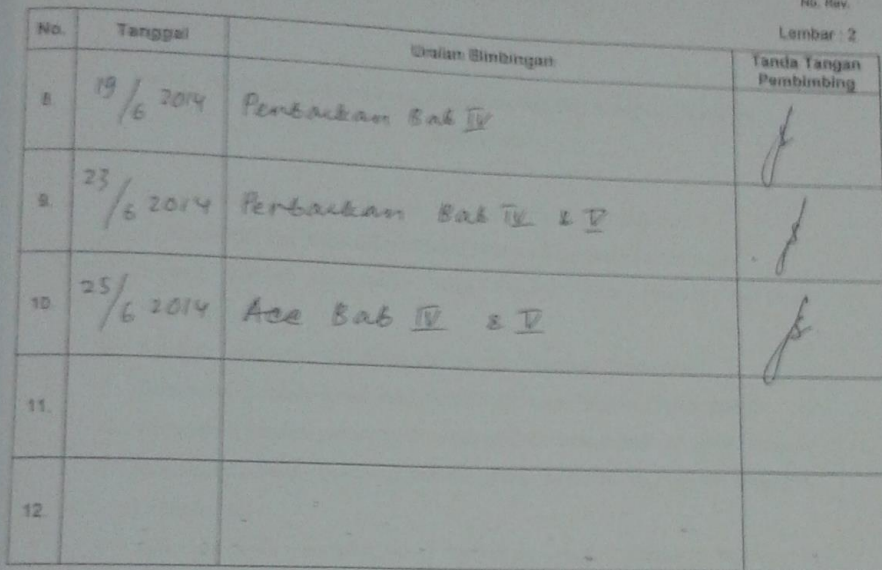 No. Rev.
Lembar : 2
No. Tanggal Uraian Bimbingan Tanda Tangan Pembimbing
8. 19/6 2014 Perbaikan Bab IV
9. 23/6 2014 Perbaikan Bab IV & V
10. 25/6 2014 Acc Bab IV & V
11.
12.